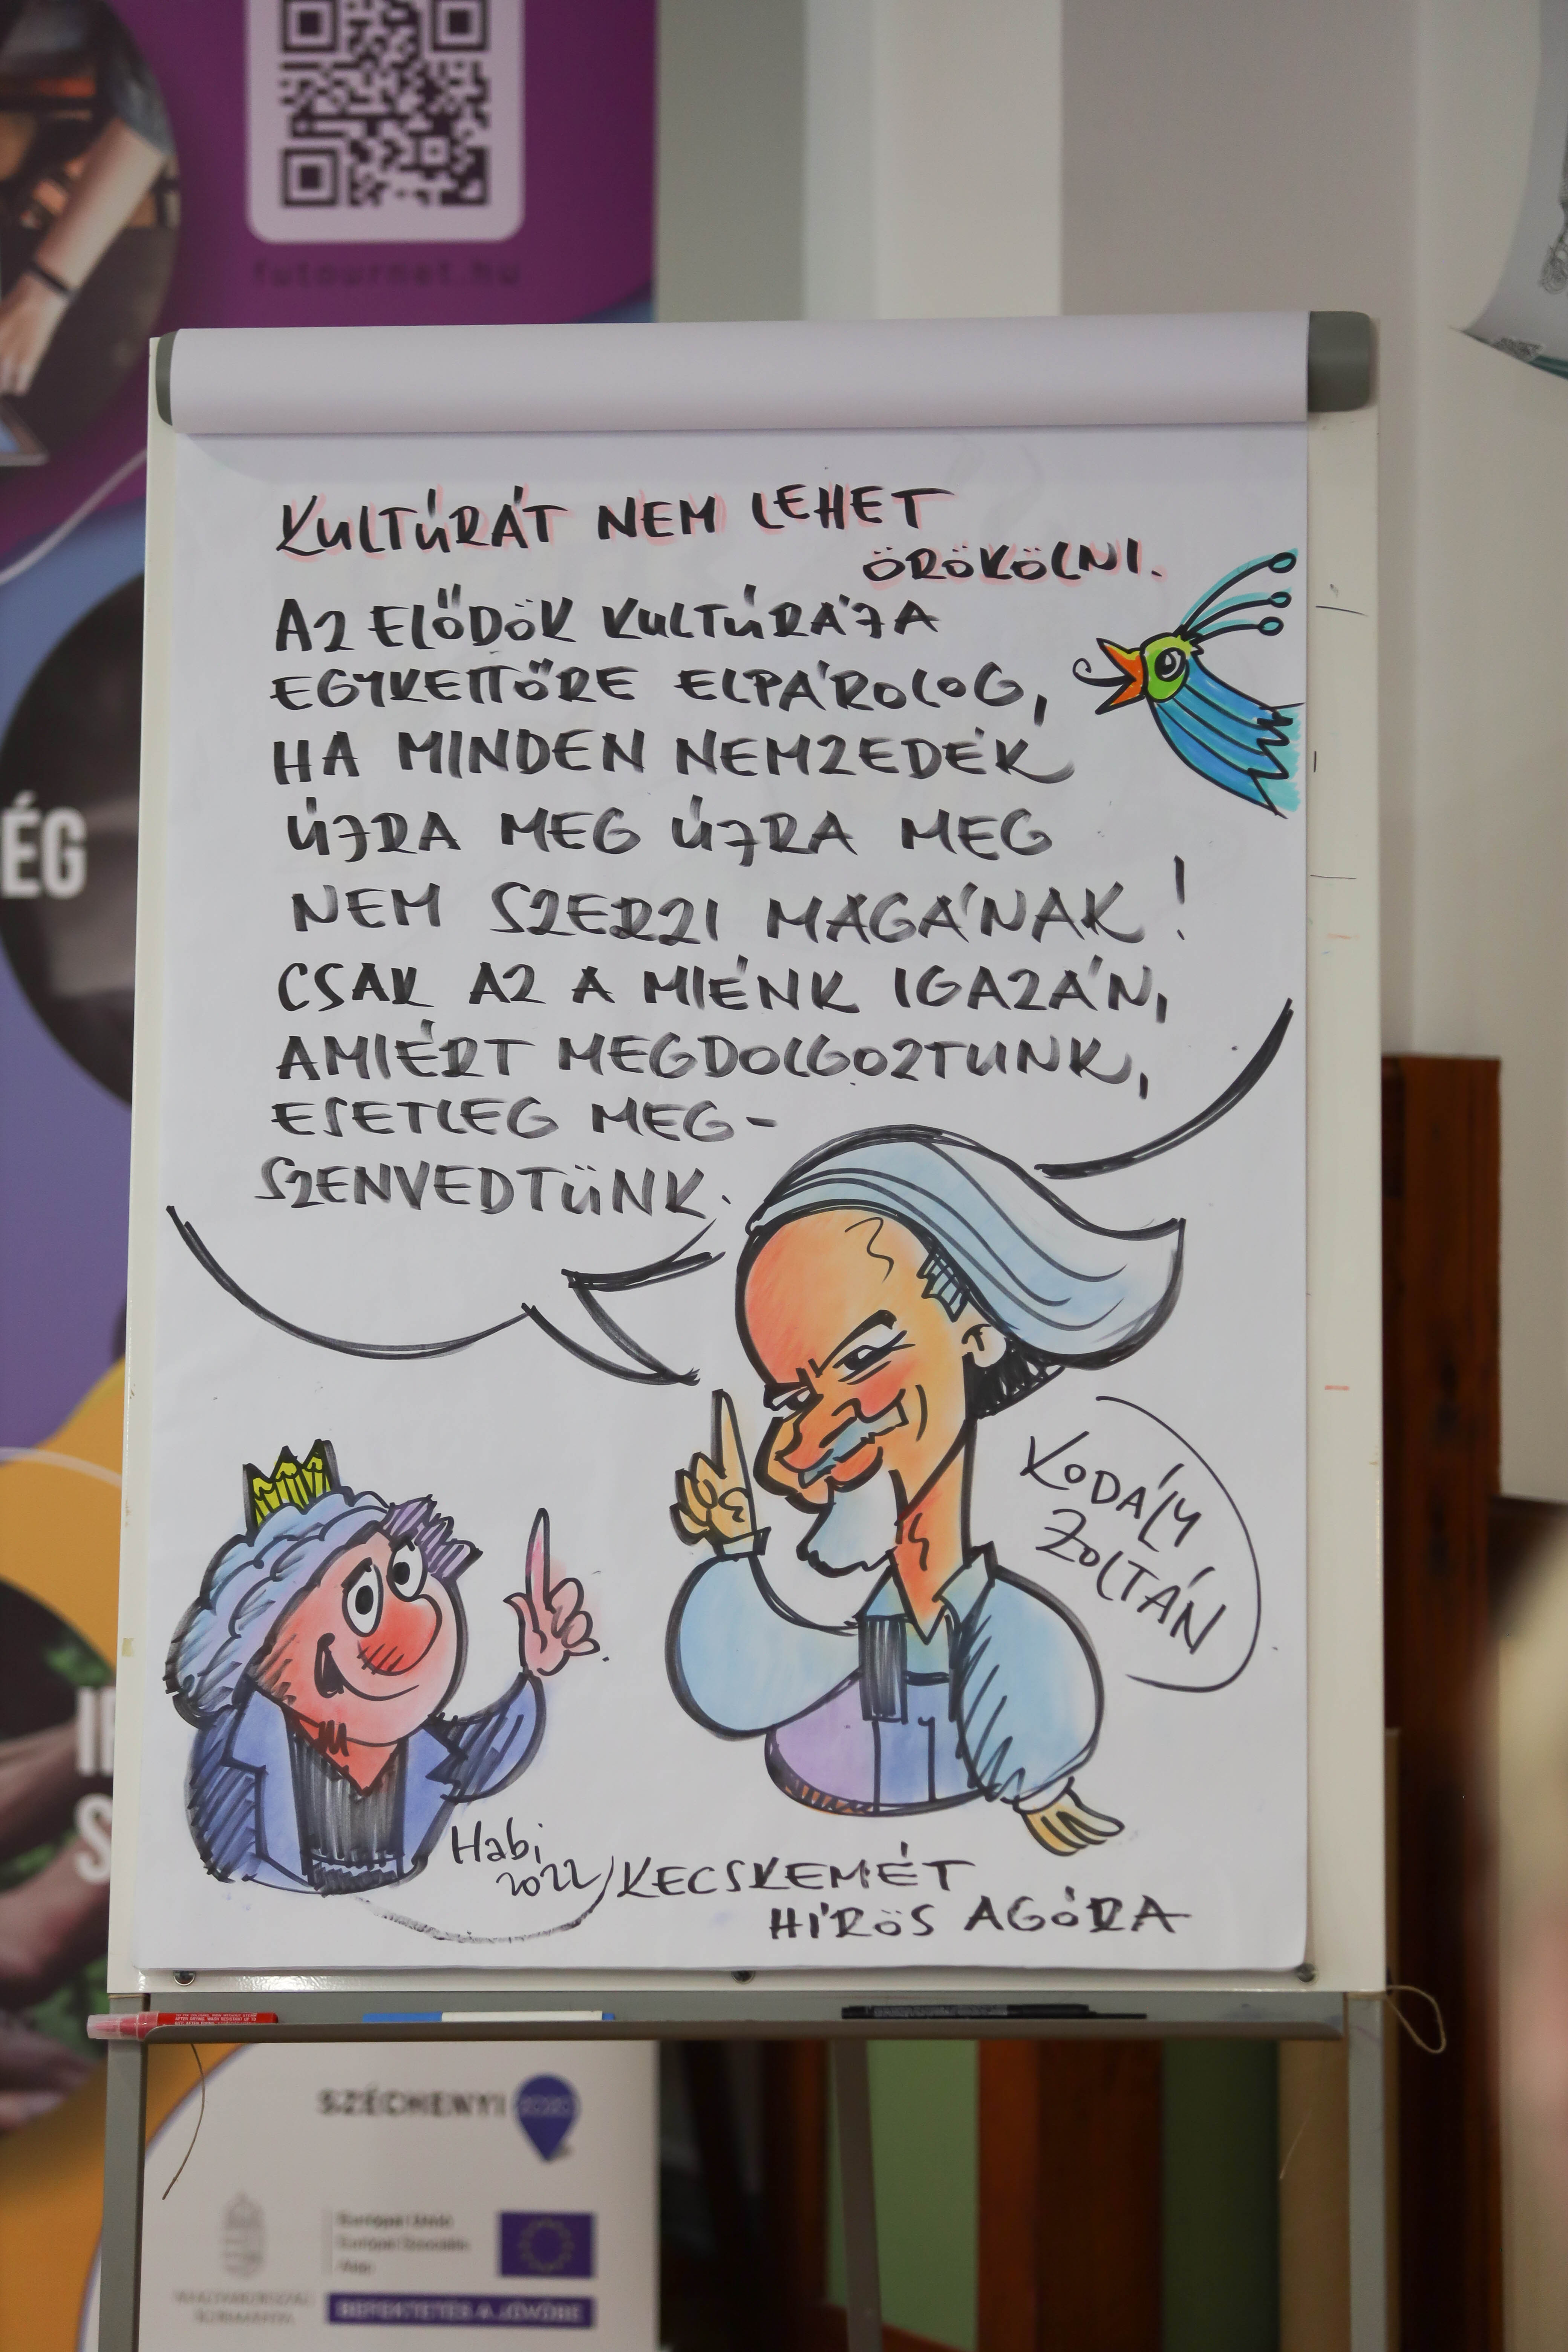 futournet.hu
ÉG
KULTÚRÁT NEM LEHET
ÖRÖKÖLNI.
AZ ELŐDÖK KULTÚRÁJA
EGYKETTŐRE ELPÁROLOG,
HA MINDEN NEMZEDÉK
ÚJRA MEG ÚJRA MEG
NEM SZERZI MAGÁNAK!
CSAK AZ A MIÉNK IGAZÁN,
AMIÉRT MEGDOLGOZTUNK,
ESETLEG MEG-
SZENVEDTÜNK.
KODÁLY
ZOLTÁN
Habi
2022
KECSKEMÉT
HÍRÖS AGÓRA
SZÉCHENYI 2020
Európai Unió
Európai Szociális
Alap
MAGYARORSZÁG
KORMÁNYA
BEFEKTETÉS A JÖVŐBE